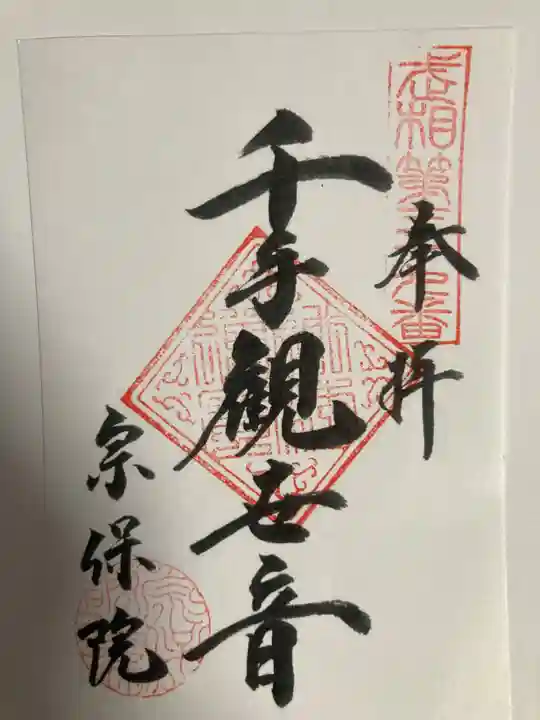 奉拝
千手観世音
宗保院